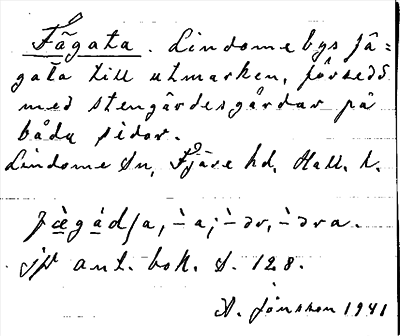 Fägata. Lindome bys fä=
gata till utmarken, försedd
med stengärdesgårdar på
båda sidor.
Lindome sn, Fjäre hd, Hall. l.
ant. bok. s. 128.
A. Jönsson 1941